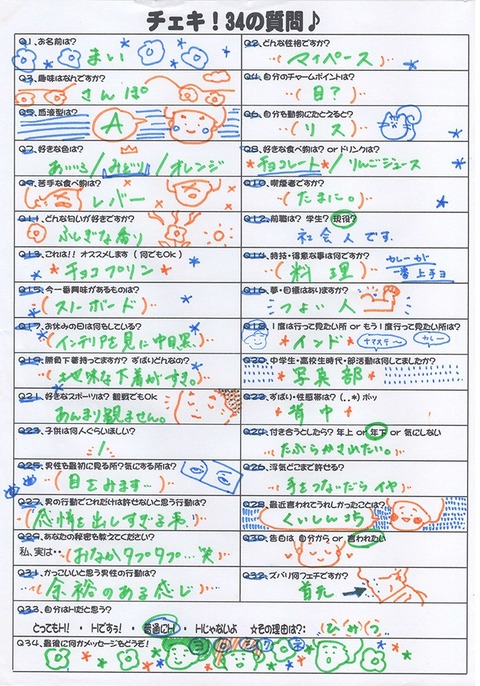 チェキ！34の質問♪
Q1、お名前は？
まい
Q2、どんな性格ですか？
マイペース
Q3、趣味はなんですか？
さんぽ
Q4、自分のチャームポイントは？
(目？)
Q5、血液型は？
A
Q6、自分を動物にたとえると？
(リス)
Q7、好きな色は？
あいいろ/みどり/オレンジ
Q8、好きな食べ物は？orドリンクは？
チョコレート/りんごジュース
Q9、苦手な食べ物は？
レバー
Q10、喫煙者ですか？
(たまに。)
Q11、どんな匂いが好きですか？
ふしぎな香り
Q12、前職は？ 学生？現役？
社会人です.
Q13、これは！！オススメします（何でもOk）
チョコプリン
Q14、特技・得意な事は何ですか？
(料理)
カレーが
一番上手ヨ
Q15、今一番興味があるものは？
(スノーボード)
Q16、夢・目標はありますか？
つよい人
Q17、お休みの日は何をしている？
(インテリアを見に中目黒)
Q18、1度は行って見たい所 or もう1度行って見たい所は？
インド
ナマステ〜
カレー
Q19、勝負下着持ってますか？ ずばりどんなの？
(地味な下着がすき。)
Q20、中学生・高校生時代・部活動は何してましたか？
写真部
Q21、好きなスポーツは？観戦でもOK
あんまり観ません。
Q22、ずばい・性感帯は？（..*）ポッ
背中
Q23、子供は何人ぐらいほしい？
1
Q24、付き合うとしたら？ 年上 or 年下 or 気にしない
たぶらかされたい。
Q25、男性を最初に見る所？気にする所は？
(目をみます…)
Q26、浮気どこまで許せる？
手をつないだらイヤ
Q27、男の行動でこれだけは許せないと思う行動は？
(感情を出しすぎる事)
Q28、最近言われてうれしかったことは？
くいしんぼう
Q29、あなたの秘密を教えてください？
私、実は・・(おなかタプタプ…笑)
Q30、告白は 自分から or 言われたい
Q31、かっこいいと思う男性の行動は？
余裕のある感じ
Q32、ズバリ何フェチですか？
首元
Q33、自分はHだと思う？
とってもH！ ・ Hですぅ！ ・ 普通にH ・ Hじゃないよ ☆その理由は？： (ひ(み(つ
Q34、最後に何かメッセージをどうぞ！
ヨロシクネ